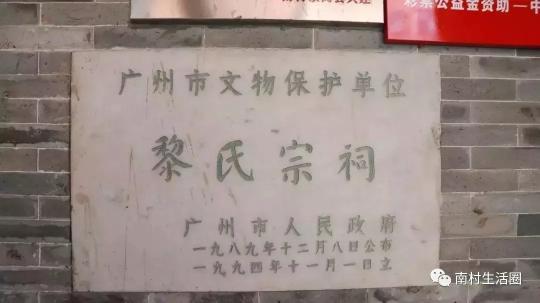 彩票公益金资助—中
广州市文物保护单位
黎氏宗祠
广州市人民政府
一九八九年十二月八日公布
一九九四年十一月一日立
南村生活圈